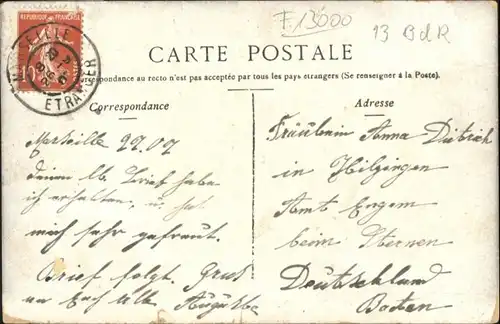 F. 13000
13 BdR
REPUBLIQUE FRANÇAISE
10
MARSEILLE
ETRANGER
CARTE POSTALE
respondance au recto n'est pas acceptée par tous les pays étrangers (Se renseigner à la Poste).
Correspondance
Marseille 27.07
Deinen lb. Brief habe
ich erhalten u. hat
mich sehr gefreut.
Brief folgt. Grus
an Euch alle Auguste
Adresse
Fräulein Anna Dietrich
in Hilzingen
Amt Engem
beim Sternen
Deutschland
Baden